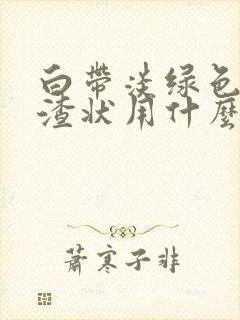 白帶淡绿色
渣状用什麼
蕭寒子非